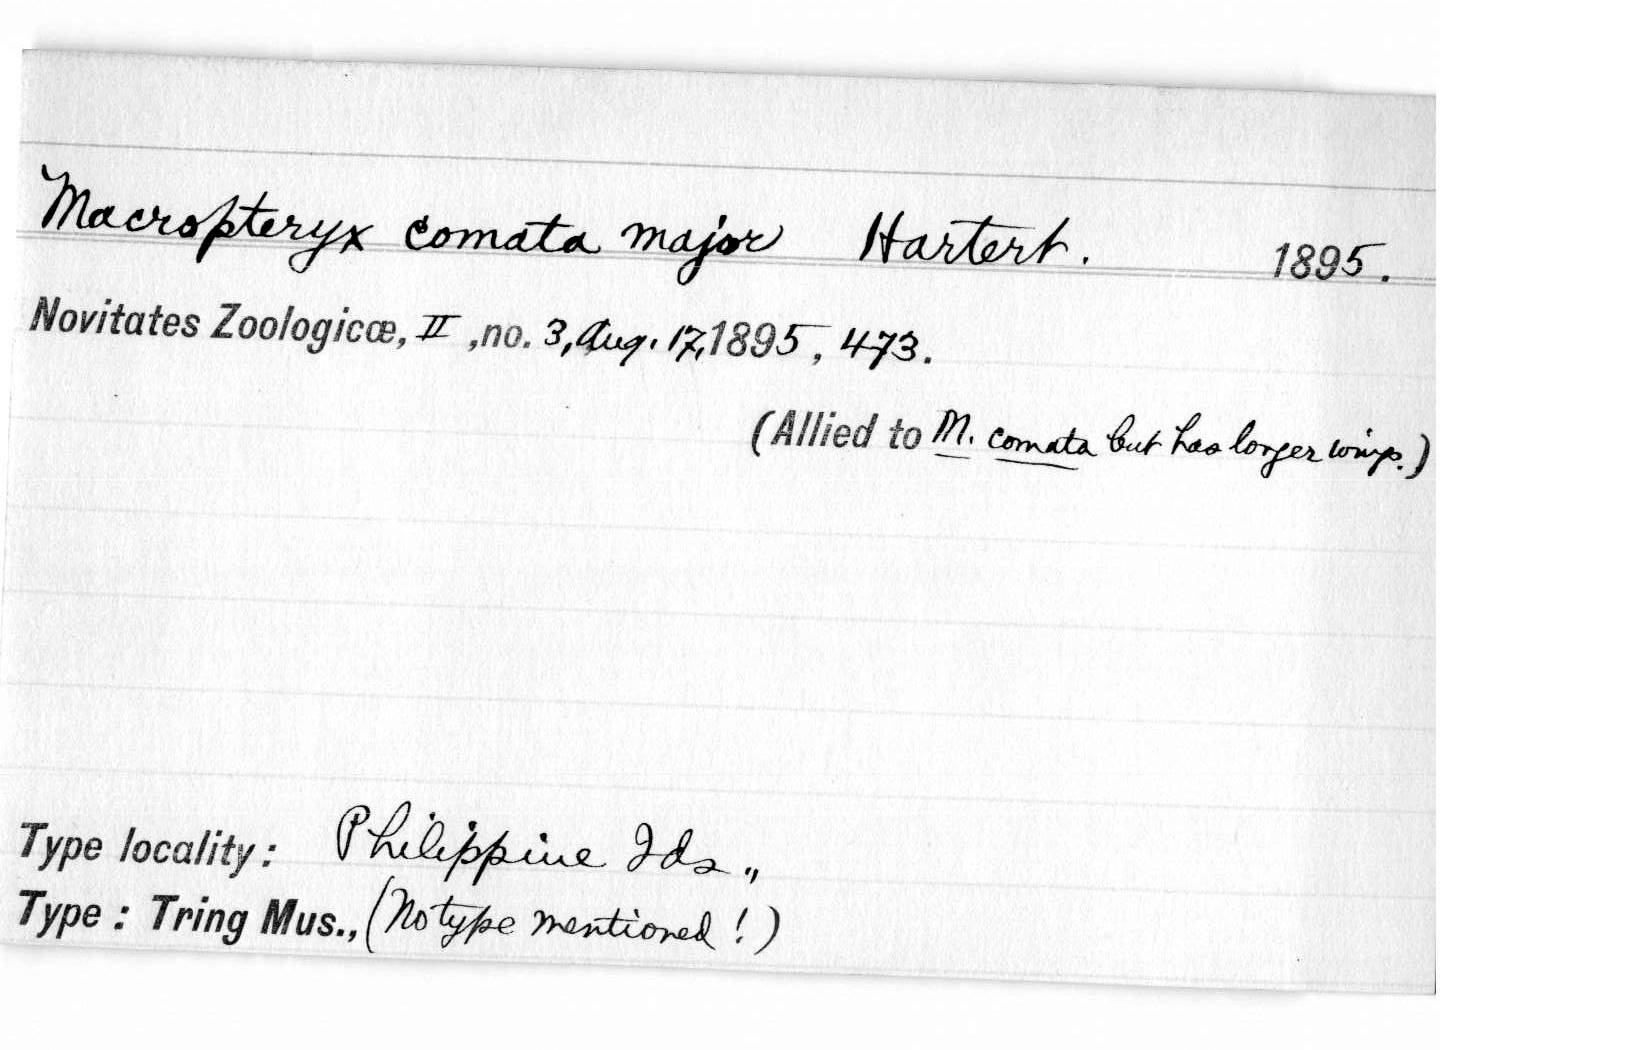 Macropteryx comata major Hartert. 1895.
Novitates Zoologicæ, II, no. 3, Aug. 17, 1895, 473.
(Allied to M. comata but has longer wings.)
Type locality: Philippine Ids.,
Type: Tring Mus., (No type mentioned!)